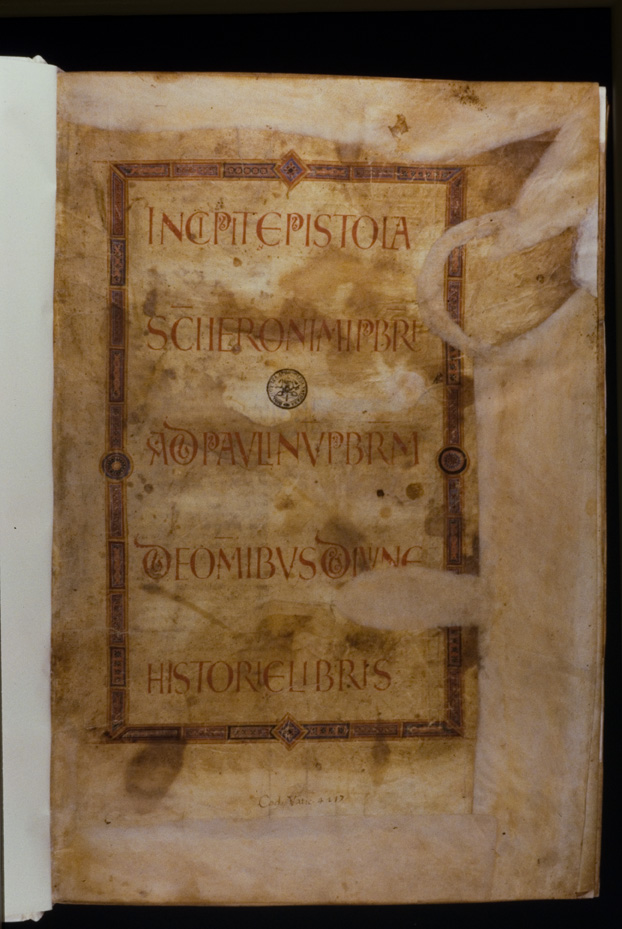 INCIPIT EPISTOLA
SC̅I IERONIMI P̅BR̅I
AD PAVLINV̅ P̅BR̅M
DE OM̅IBVS DIVINE
HISTORIE LIBRIS
Cod. Vatic.